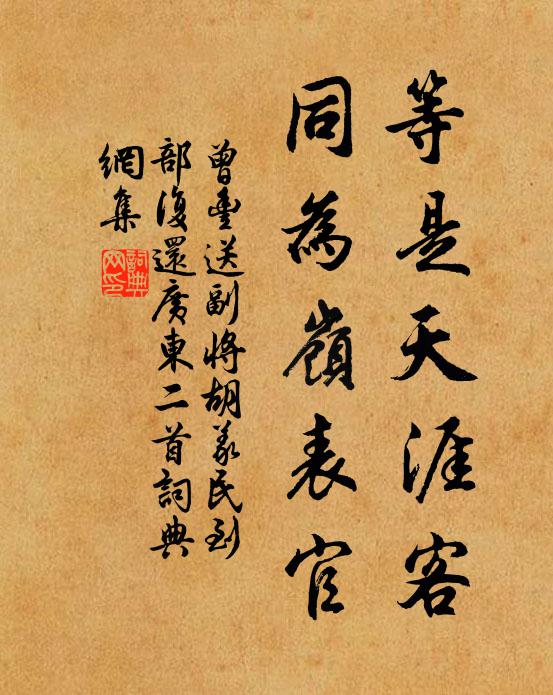 等是天涯客
同為嶺表官
曾豐送副將胡義民到
部復還廣東二首詞典
網集
詞典
网印